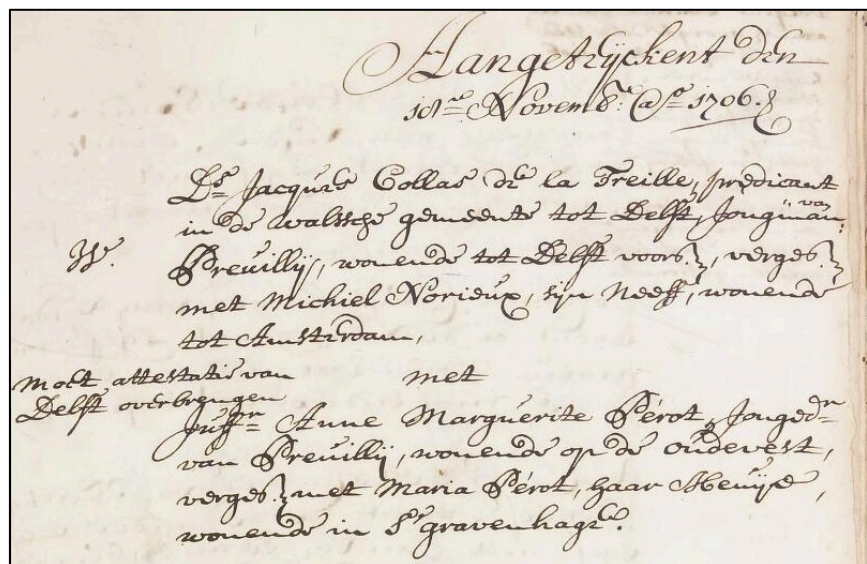 Aangetekent den
18en Novemb.r @o 1706.
Ds. Jacques Collas de la Treille, predicant
in de walsche gemeente tot Delft, Jongman van
W.
Preuilly, wonende tot Delft voors., verges.
met Michiel Norieux, sijn Neeff, wonende
tot Amsterdam,
moet attestatie van
Delft overbrengen
met
Juffr. Anne Marguerite Pérot, Jonged.r
van Preuilly, wonende op de oudevest,
verges. met Maria Pérot, haar Meuije,
wonende in s'gravenhage.